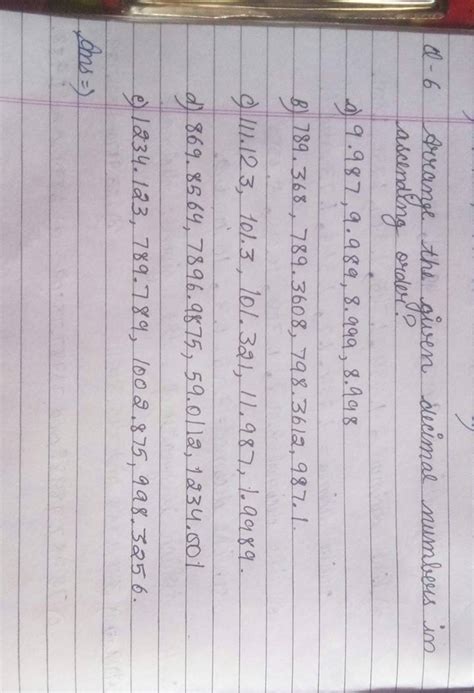 Q-6 Arrange the given decimal numbers in
ascending order?
a) 9.987, 9.989, 8.999, 8.998
B) 789.368, 789.3608, 798.3612, 987.1.
c) 11.12.3, 101.3, 101.321, 11.987, 1.9989.
d) 869.8564, 7896.9875, 59.0112, 1234.501
e) 1234.123, 789.789, 1002.875, 998.3256.
Ans =>